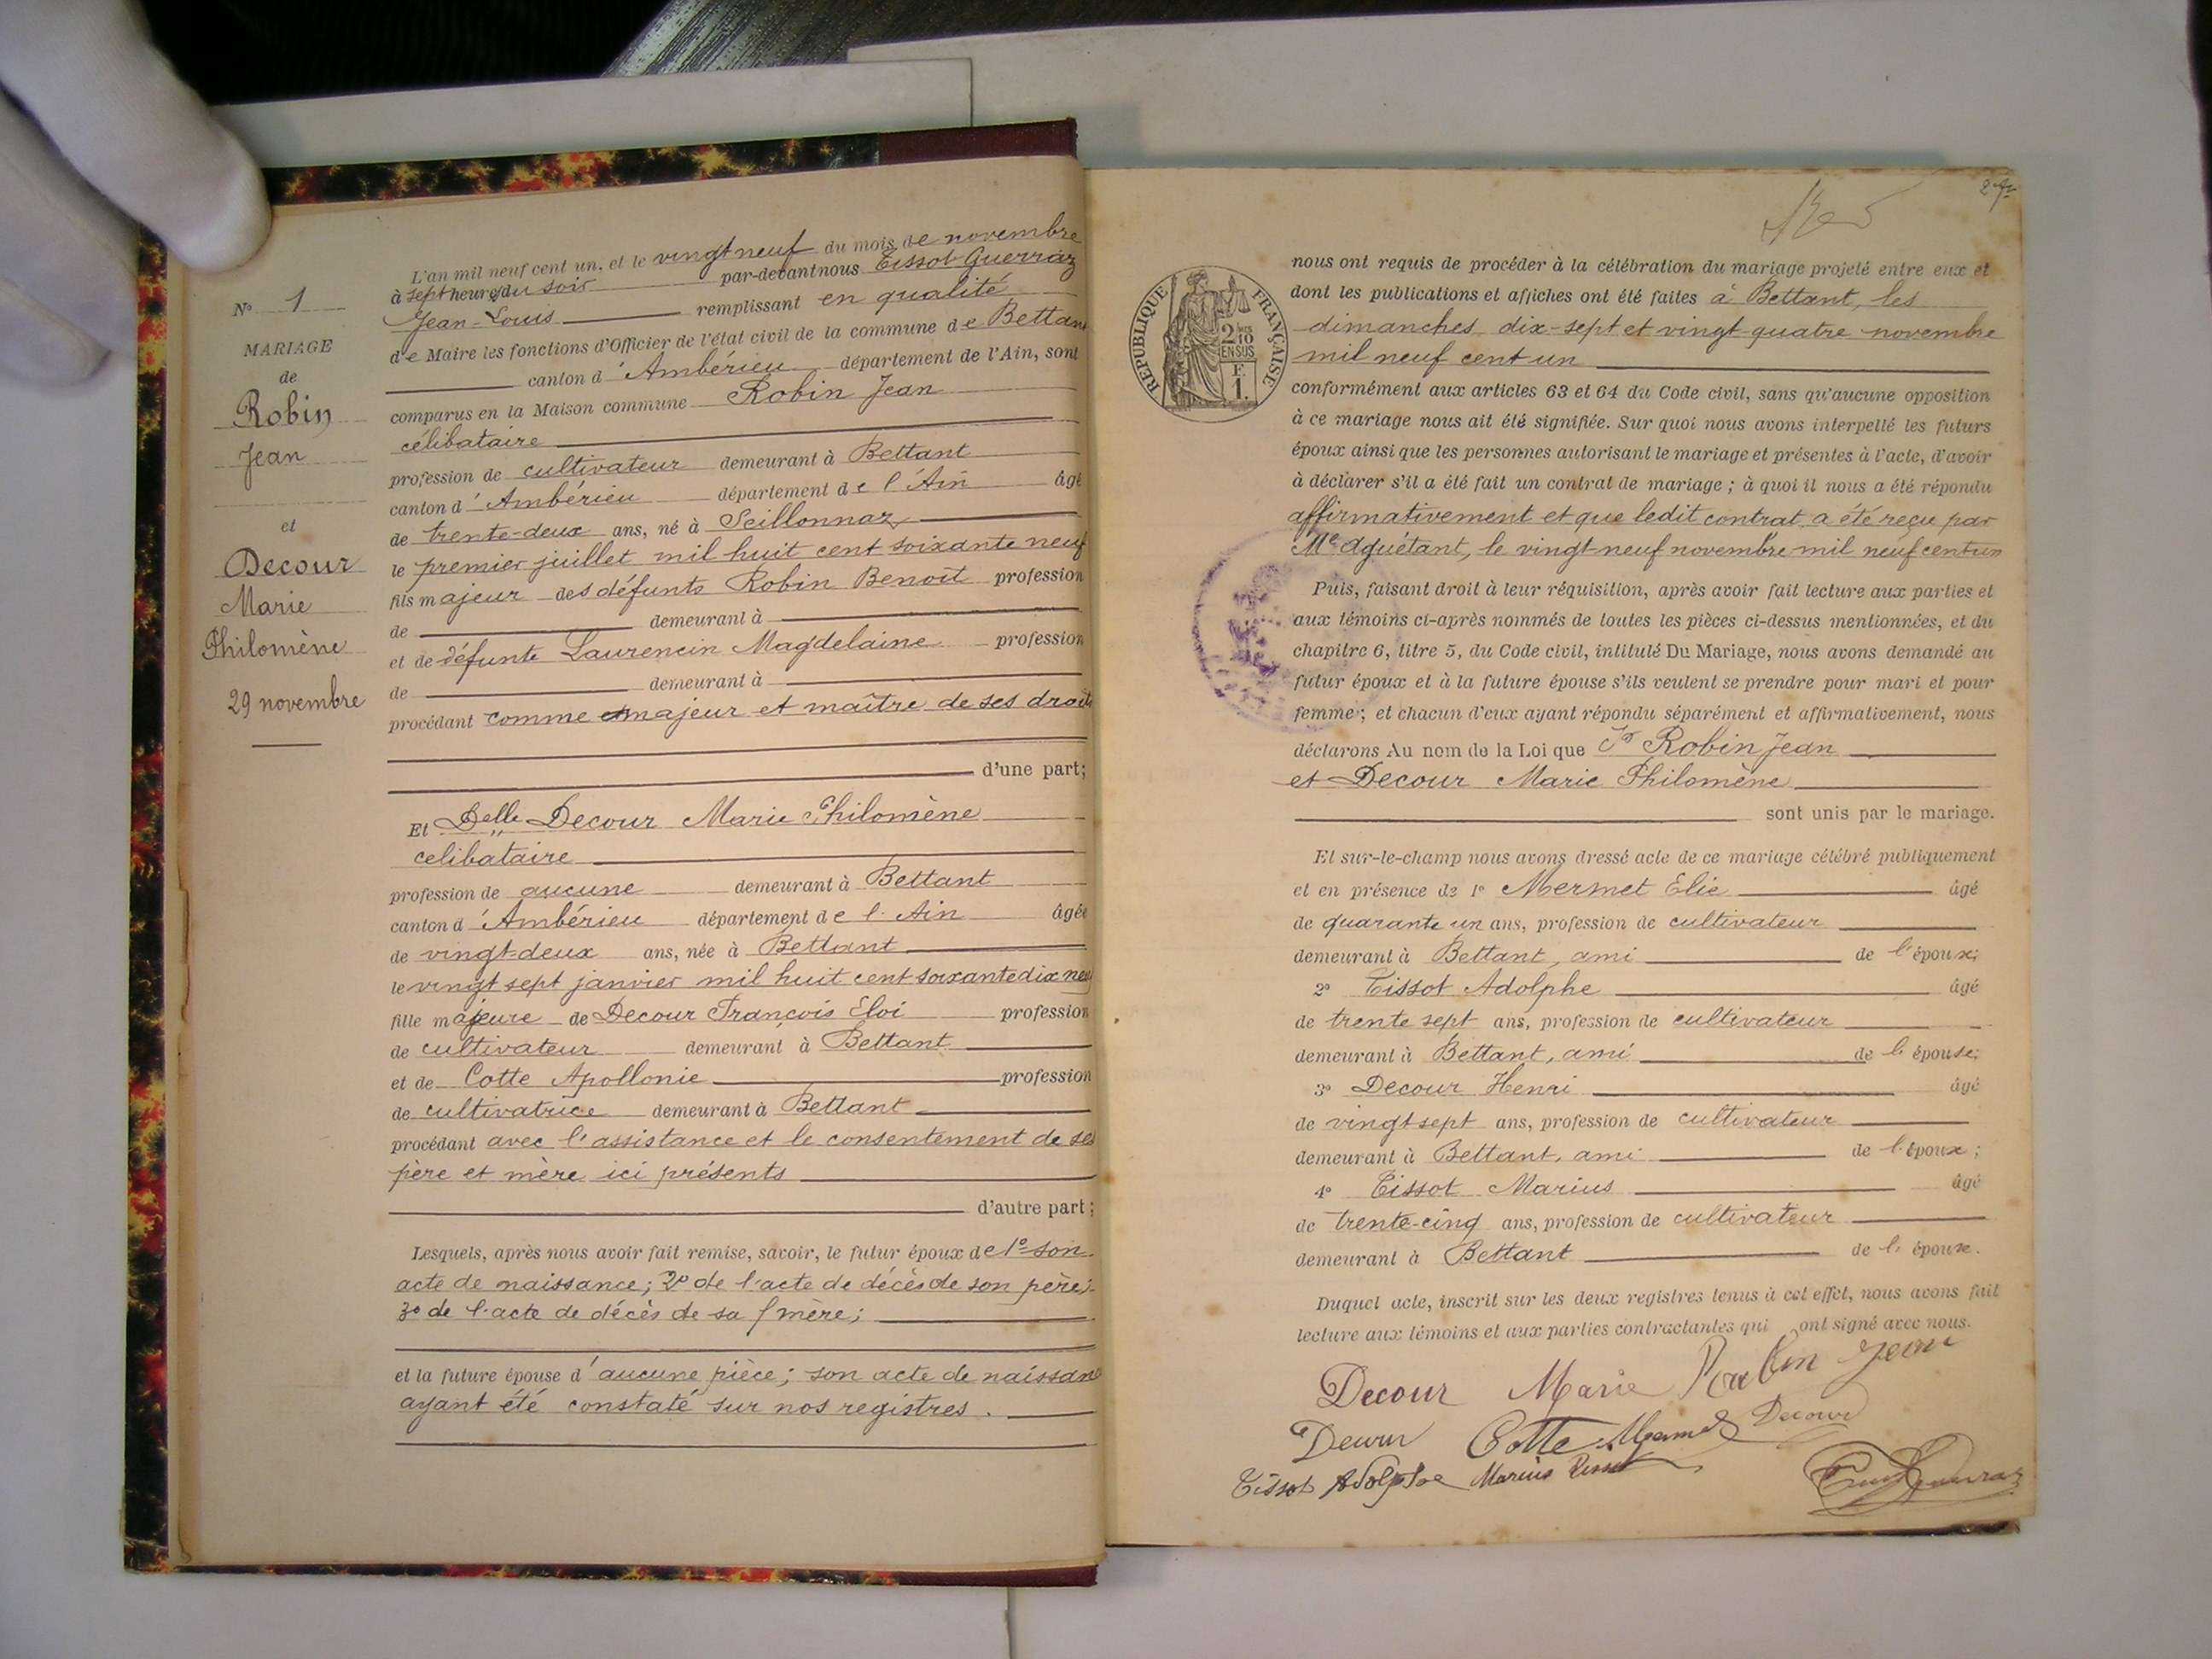 N° 1
MARIAGE
de
Robin
Jean
et
Decour
Marie
Philomène
29 novembre
L'an mil neuf cent un, et le vingt neuf du mois de novembre
à sept heures du soir par-devant nous Tissot Guerraz
Jean-Louis remplissant en qualité
de Maire les fonctions d'Officier de l'état civil de la commune de Bettant
canton d'Ambérieu département de l'Ain, sont
comparus en la Maison commune Robin Jean
célibataire
profession de cultivateur demeurant à Bettant
canton d'Ambérieu département de l'Ain âgé
de trente-deux ans, né à Seillonnaz
le premier juillet mil huit cent soixante neuf
fils majeur des défunts Robin Benoit profession
de demeurant à
et de défunte Laurencin Magdelaine profession
de demeurant à
procédant comme majeur et maître de ses droits
d'une part;
Et Delle Decour Marie Philomène
celibataire
profession de aucune demeurant à Bettant
canton d'Ambérieu département de l'Ain âgée
de vingt-deux ans, née à Bettant
le vingt sept janvier mil huit cent soixante dix neuf
fille majeure de Decour François Eloi profession
de cultivateur demeurant à Bettant
et de Cotte Apollonie profession
de cultivatrice demeurant à Bettant
procédant avec l'assistance et le consentement de ses
père et mère ici présents
d'autre part;
Lesquels, après nous avoir fait remise, savoir, le futur époux de 1° son
acte de naissance; 2° de l'acte de décès de son père;
3° de l'acte de décès de sa mère;
et la future épouse d'aucune pièce; son acte de naissance
ayant été constaté sur nos registres.
RÉPUBLIQUE FRANÇAISE
2/10
EN SUS
F.
1.
nous ont requis de procéder à la célébration du mariage projeté entre eux et
dont les publications et affiches ont été faites à Bettant, les
dimanches dix-sept et vingt quatre novembre
mil neuf cent un
conformément aux articles 63 et 64 du Code civil, sans qu'aucune opposition
à ce mariage nous ait été signifiée. Sur quoi nous avons interpellé les futurs
époux ainsi que les personnes autorisant le mariage et présentes à l'acte, d'avoir
à déclarer s'il a été fait un contrat de mariage; à quoi il nous a été répondu
affirmativement et que ledit contrat a été reçu par
Me Aguétant, le vingt-neuf novembre mil neuf cent un
Puis, faisant droit à leur réquisition, après avoir fait lecture aux parties et
aux témoins ci-après nommés de toutes les pièces ci-dessus mentionnées, et du
chapitre 6, titre 5, du Code civil, intitulé Du Mariage, nous avons demandé au
futur époux et à la future épouse s'ils veulent se prendre pour mari et pour
femme; et chacun d'eux ayant répondu séparément et affirmativement, nous
déclarons Au nom de la Loi que Robin Jean
et Decour Marie Philomène
sont unis par le mariage.
Et sur-le-champ nous avons dressé acte de ce mariage célébré publiquement
et en présence de 1° Mermet Elie âgé
de quarante un ans, profession de cultivateur
demeurant à Bettant, ami de l'époux;
2° Tissot Adolphe âgé
de trente sept ans, profession de cultivateur
demeurant à Bettant, ami de l'épouse;
3° Decour Henri âgé
de vingt sept ans, profession de cultivateur
demeurant à Bettant, ami de l'époux;
4° Tissot Marius âgé
de trente-cinq ans, profession de cultivateur
demeurant à Bettant de l'épouse.
Duquel acte, inscrit sur les deux registres tenus à cet effet, nous avons fait
lecture aux témoins et aux parties contractantes qui ont signé avec nous.
Decour Marie Robin Jean
Decour Cotte Mermet Decour
Tissot Adolphe Marius Tissot